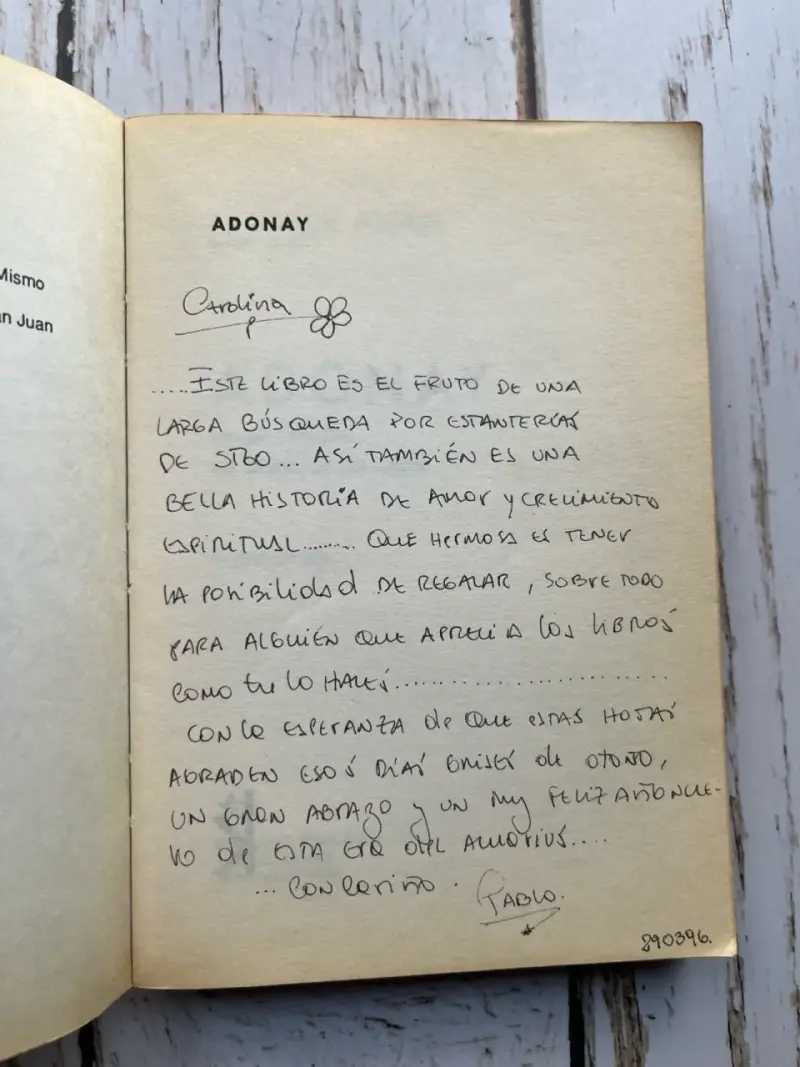 Mismo
n Juan
ADONAY
Carolina
.....ESTE LIBRO ES EL FRUTO DE UNA
LARGA BÚSQUEDA POR ESTANTERÍAS
DE STGO... ASÍ TAMBIÉN ES UNA
BELLA HISTORIA DE AMOR Y CRECIMIENTO
ESPIRITUAL......... QUE HERMOSO ES TENER
LA POSIBILIDAD DE REGALAR, SOBRE TODO
PARA ALGUIÉN QUE APRECIA LOS LIBROS
COMO TU LO HACES..............................
CON LA ESPERANZA DE QUE ESTAS HOJAS
AGRADEN ESOS DÍAS GRISES DE OTOÑO,
UN GRAN ABRAZO Y UN MUY FELIZ AÑO NUE-
VO DE ESTA ERA DEL ACUARIUS....
... CON CARIÑO. PABLO.
890396.